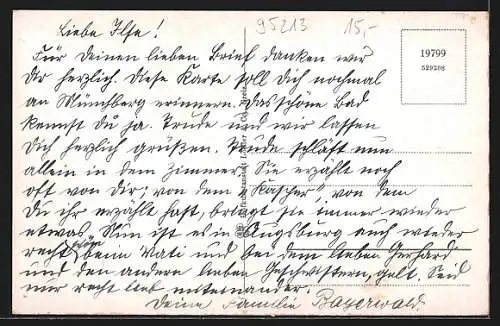 95213 15,-
Liebe Ilse!
Für Deinen lieben Brief danken wir
Dir herzlich. Diese Karte soll Dich nochmal
an Münchberg erinnern. Das schöne Bad
kennst du ja. Trude und wir lassen
Dich herzlich grüßen. Trude schläft nun
allein in dem Zimmer. Sie erzählt noch
oft von Dir; von dem "Kascher", von dem
Du ihr erzählt hast, bringt sie immer wieder
etwas. Nun ist es in Augsburg auch wieder
recht schön beim Vati und bei dem lieben Gerhard
und den andern lieben Geschwistern, gelt. Seid
nur recht lieb miteinander.
Deine Familie Bayerwald.
19799
529208